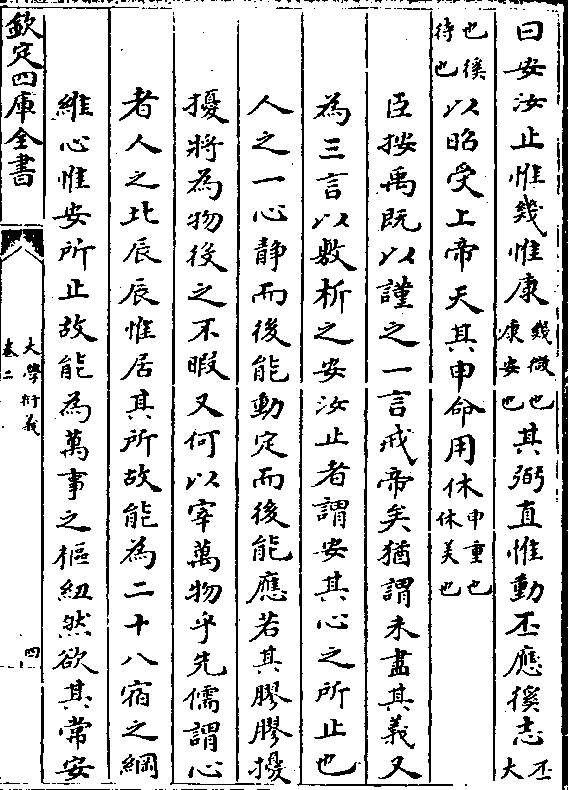 曰安汝止惟幾惟康幾微也康安也其弼直惟動丕應徯志丕大
也徯待也以昭受上帝天其申命用休申重也休美也
臣按禹既以謹之一言戒帝矣猶謂未盡其義又
為三言以敷析之安汝止者謂安其心之所止也
人之一心靜而後能動定而後能應若其膠膠擾
擾將為物役之不暇又何以宰萬物乎先儒謂心
者人之北辰辰惟居其所故能為二十八宿之綱
維心惟安所止故能為萬事之樞紐然欲其常安
欽定四庫全書
大學衍義
卷二
四